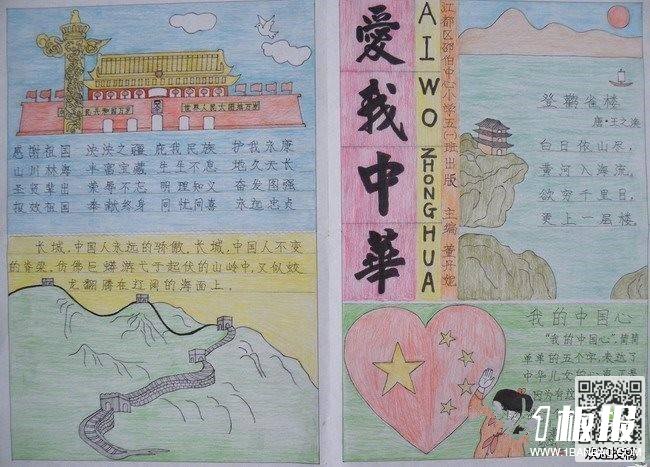 世界人民大团结万岁
感谢祖国 泱泱之疆 庇我民族 护我永康
山川林海 丰富宝藏 生生不息 地久天长
圣贤辈出 荣辱不忘 明理知义 奋发图强
报效祖国 奉献终身 同忧同喜 永远忠贞
长城,中国人永远的骄傲。长城,中国人不变
的脊梁。仿佛巨蟒游弋于起伏的山岭中,又似蛟
龙翻腾在辽阔的海面上。
愛我中華
AI WO ZHONGHUA
江都区邵伯中心小学五(一)班出版 主编 董丹妮
登鹳雀楼
唐·王之涣
白日依山尽,
黄河入海流。
欲穷千里目,
更上一层楼。
我的中国心
"我的中国心",简简
单单的五个字,表达了
中华儿女的心声
1板报
WWW.1BANBAO.COM
欢迎投稿